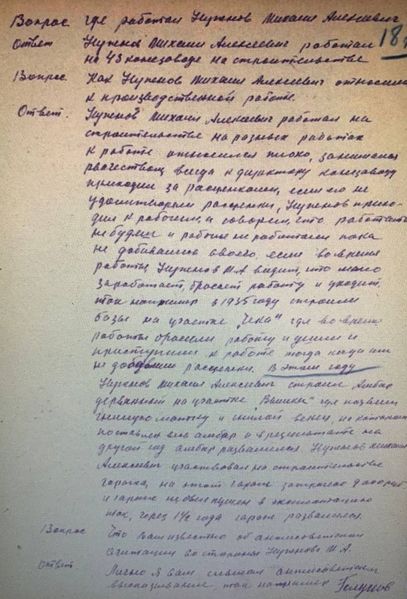 Вопрос где работал Нуженов Михаил Алексеевич
18
Ответ Нуженов Михаил Алексеевич работал
на 43 конезаводе на строительстве
Вопрос Как Нуженов Михаил Алексеевич относился
к производственной работе.
Ответ. Нуженов Михаил Алексеевич работал на
строительстве на разных работах
к работе относился плохо, занимался
рвачеством, всегда к директору конезавода
приходил за расценками, если его не
удовлетворяли расценки, Нуженов прихо-
дил к рабочим, и говорил, что работать
не будем и рабочие не работали пока
не добивались своего, если во время
работы Нуженов М.А. видит, что мало
заработает, бросает работу и уходит,
так например в 1935 году строили
базы на участке где во время
работы бросили работу и ушли и
приступили к работе тогда когда им
не добавили расценки. В этом году
Нуженов Михаил Алексеевич строил амбар
деревянный на участке где положил
гнилую и гнилой венец, на котором
поставлен весь амбар и в результате на
другой год амбар развалился. Нуженов Михаил
Алексеевич участвовал на строительстве
гаража, на этот гараж затрачено
и гараж не был пущен в эксплоатацию
так, через 1½ года гараж развалился.
Вопрос Что Вам известно об антисоветской
агитации со стороны Нуженова М.А.
Ответ Лично я сам слышал антисоветские
высказывания так например